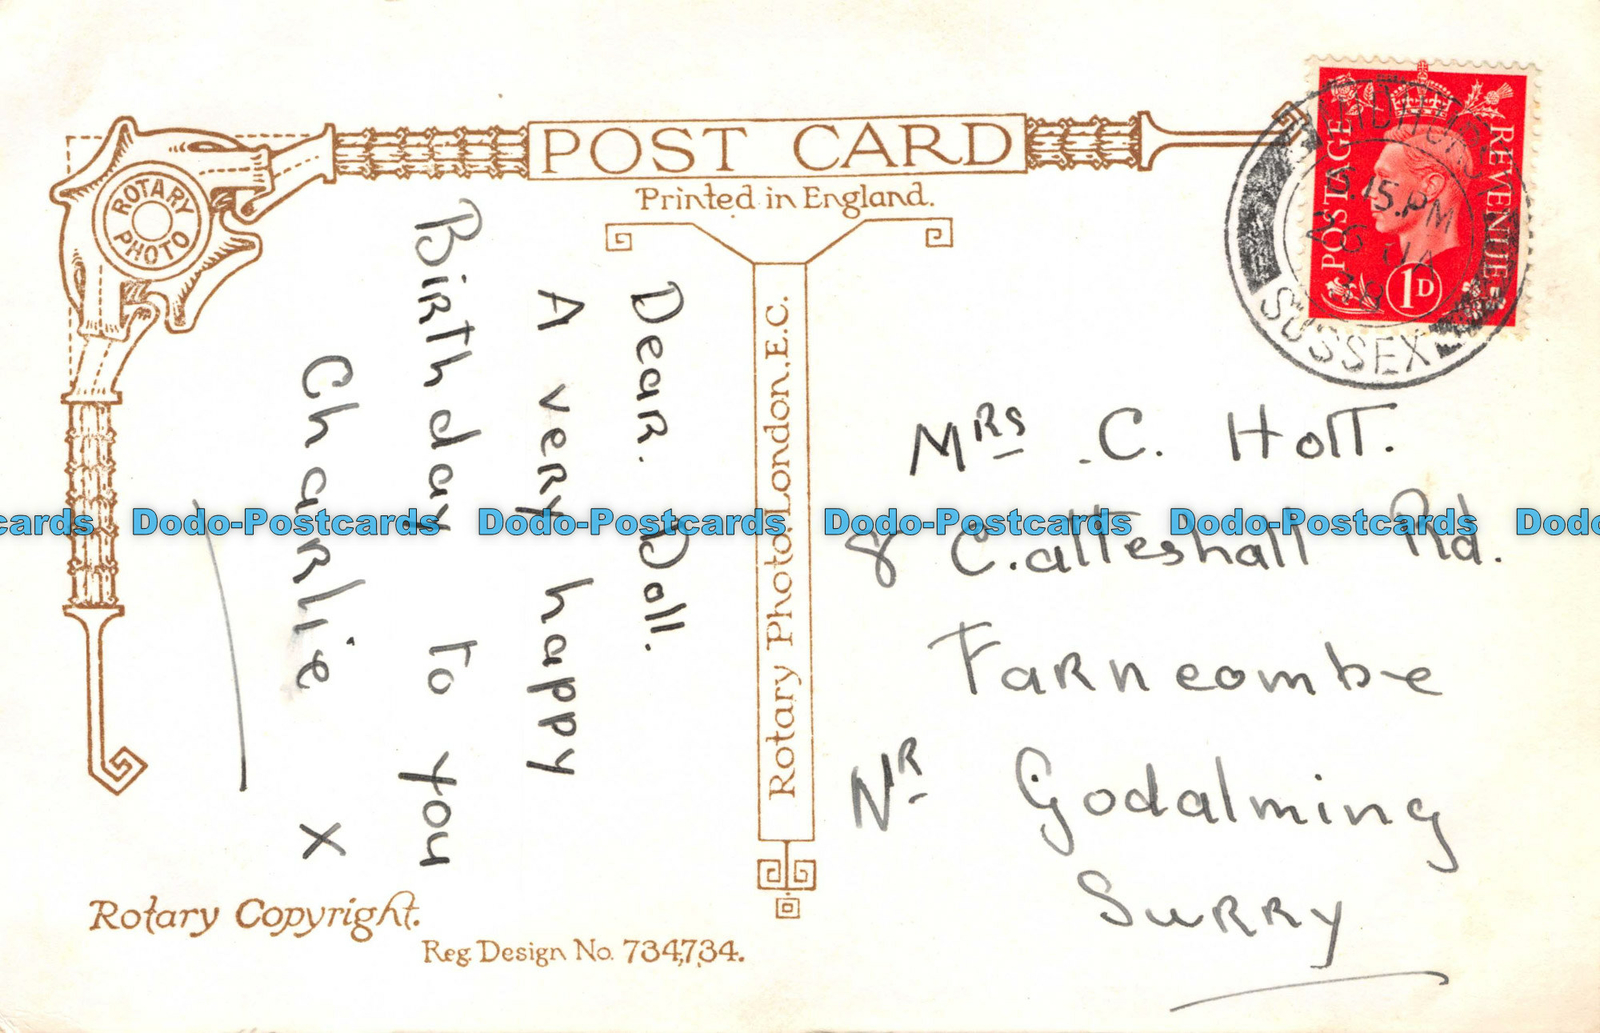 POST CARD
Printed in England.
ROTARY PHOTO
POSTAGE REVENUE
1D
5.15.PM
SUSSEX
Dear. Doll.
A very happy
Birthday to you
Charlie x
Rotary Photo. London, E.C.
Mrs C. Holt.
8 Catteshall Rd.
Farncombe
Nr Godalming
Surry
Rotary Copyright.
Reg. Design No. 734,734.
cards Dodo-Postcards Dodo-Postcards Dodo-Postcards Dodo-Postcards Dodo